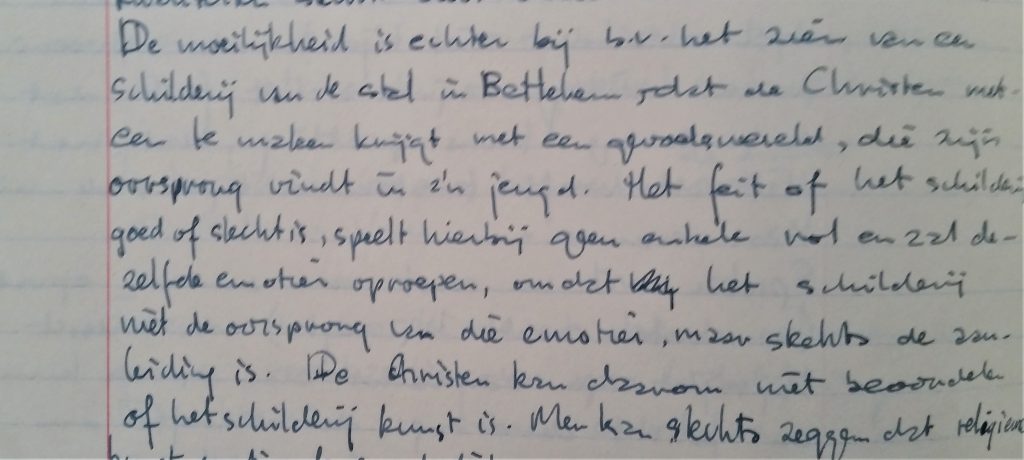 De moeilijkheid is echter bij b.v. het zien van een
schilderij van de stal in Bethlehem, dat de Christen met-
een te maken krijgt met een gevoelswereld, die zijn
oorsprong vindt in z'n jeugd. Het feit of het schilderij
goed of slecht is, speelt hierbij geen enkele rol en zal de-
zelfde emoties oproepen, omdat het schilderij
niet de oorsprong van die emoties, maar slechts de aan-
leiding is. De Christen kan daarom niet beoordelen
of het schilderij kunst is. Men kan slechts zeggen dat religieuze